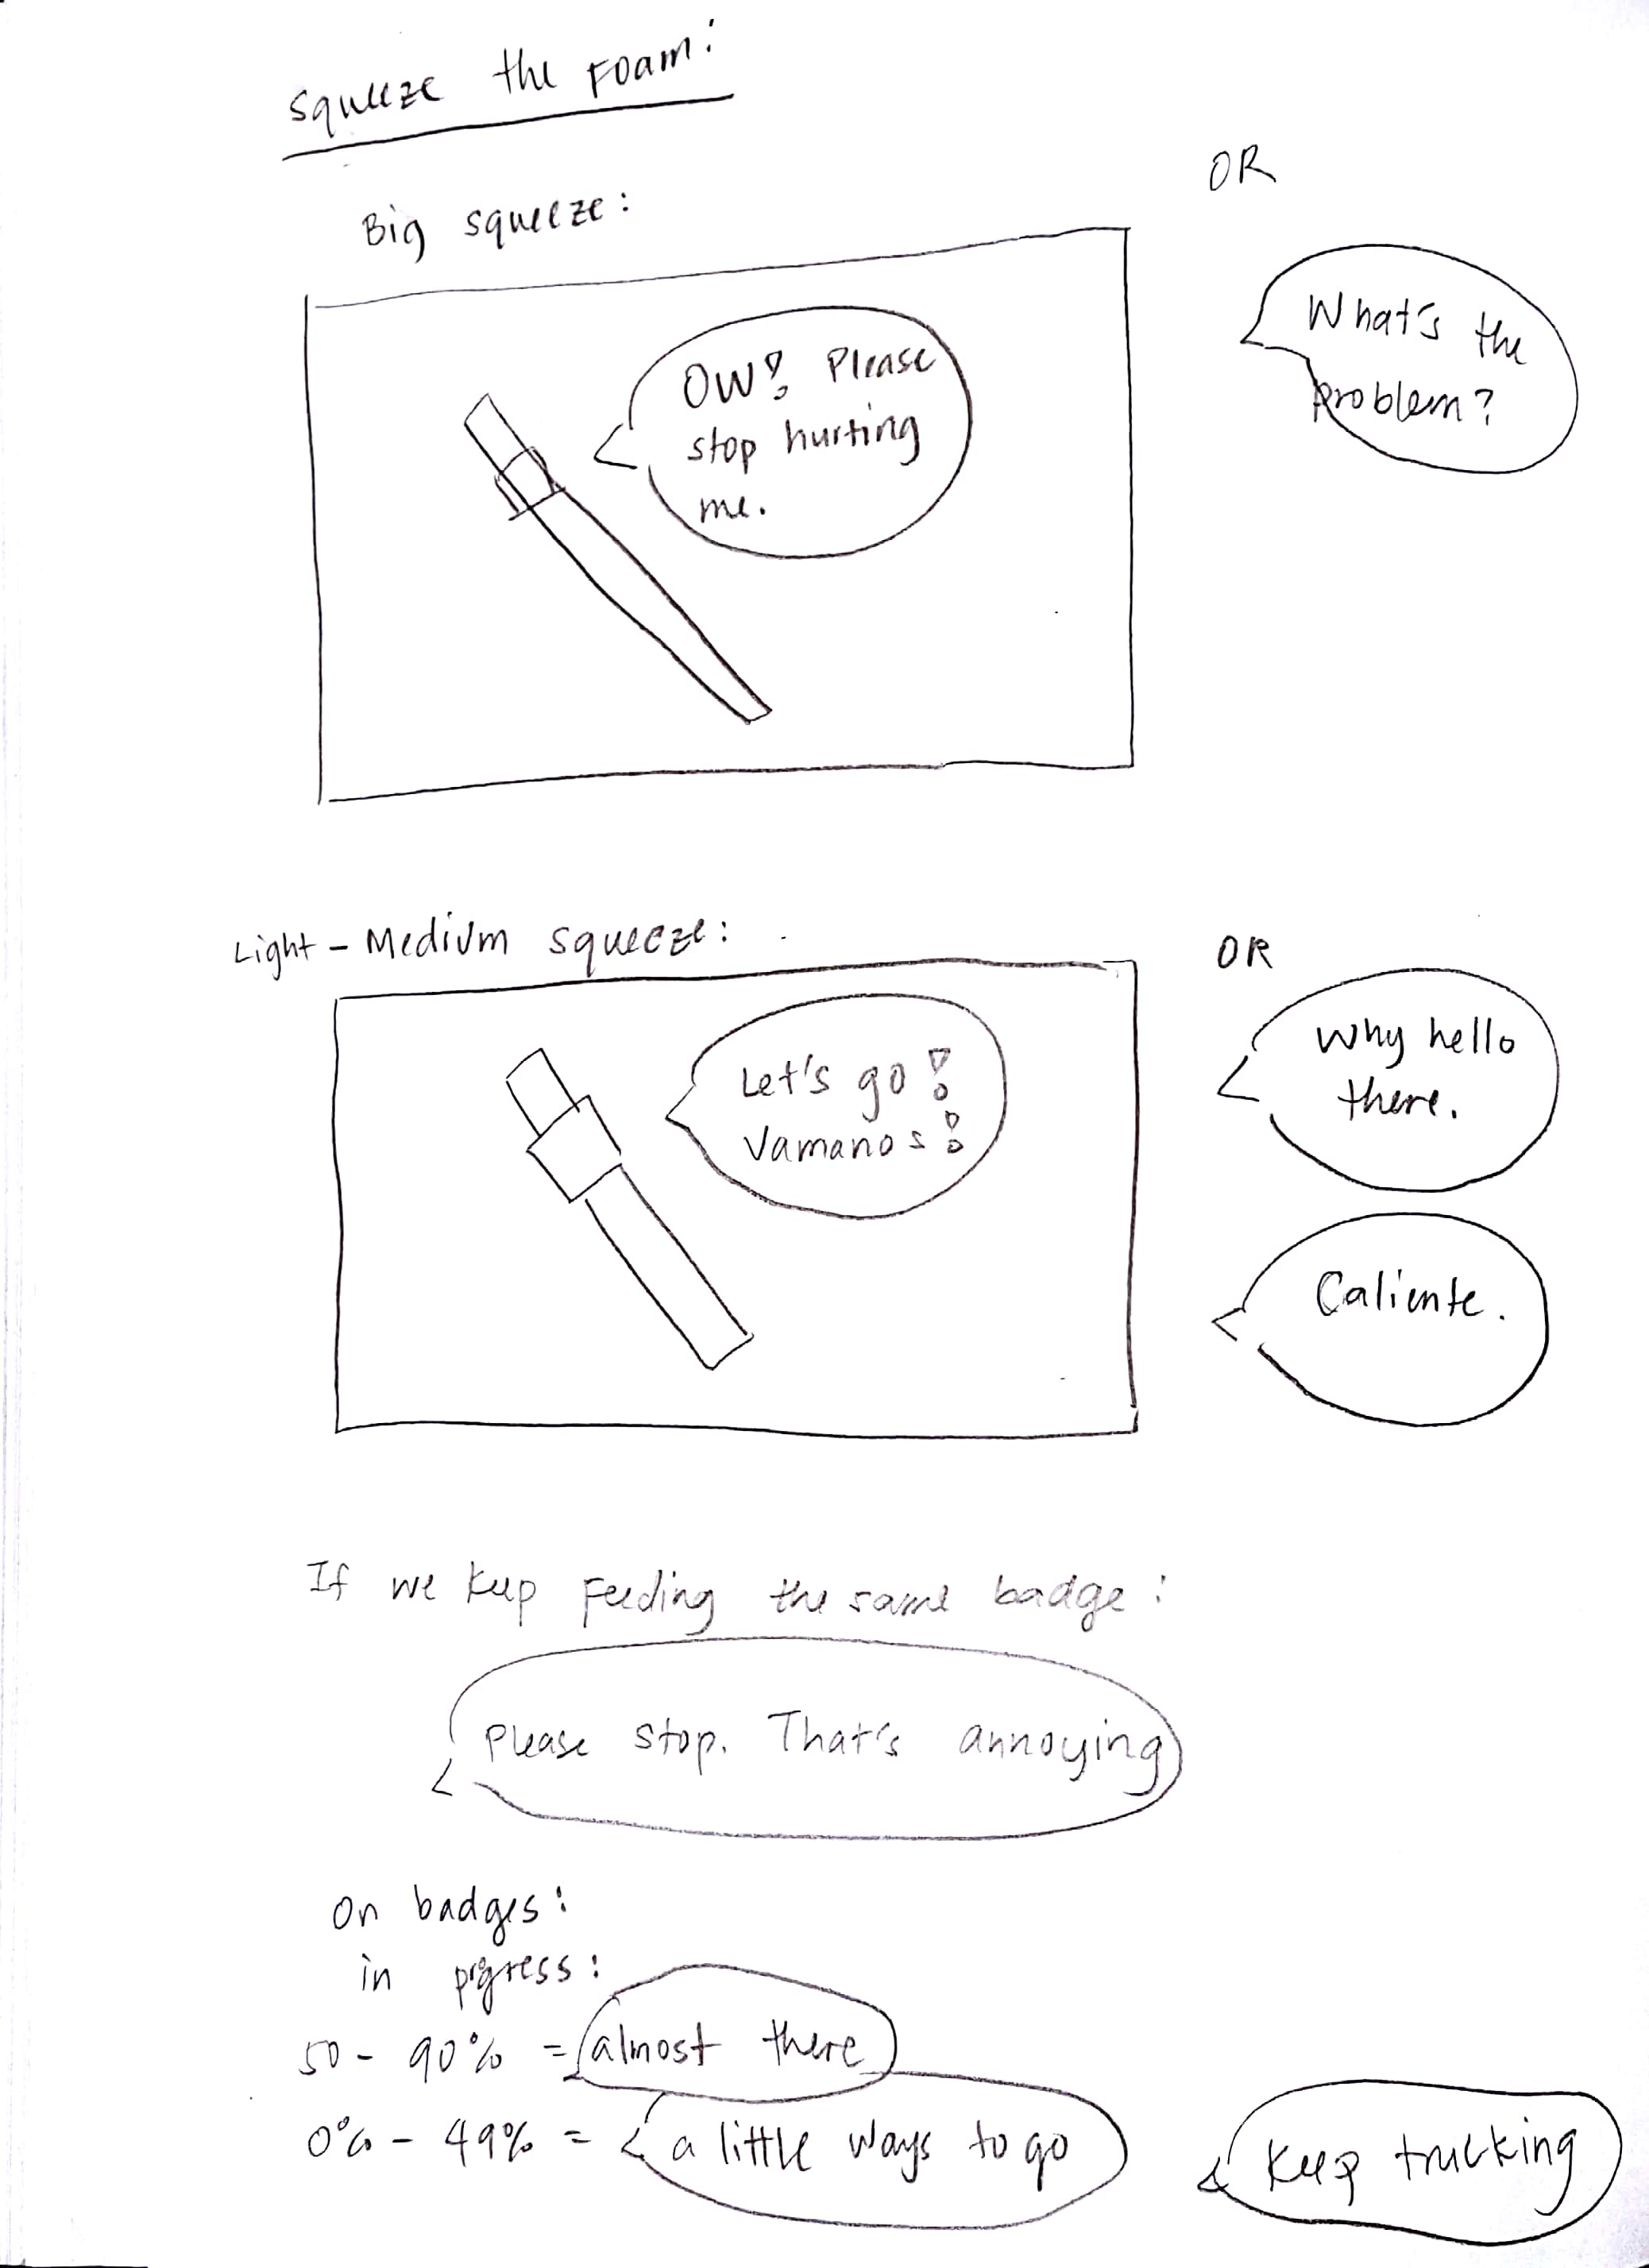 Squeeze the Foam:
Big squeeze:
OW! Please
stop hurting
me.
OR
What's the
problem?
Light - Medium squeeze:
Let's go!
Vamanos!
OR
Why hello
there.
Caliente.
If we keep feeding the same badge:
Please stop. That's annoying
On badges:
in prgress:
50 - 90% = almost there
0% - 49% = a little ways to go
Keep trucking